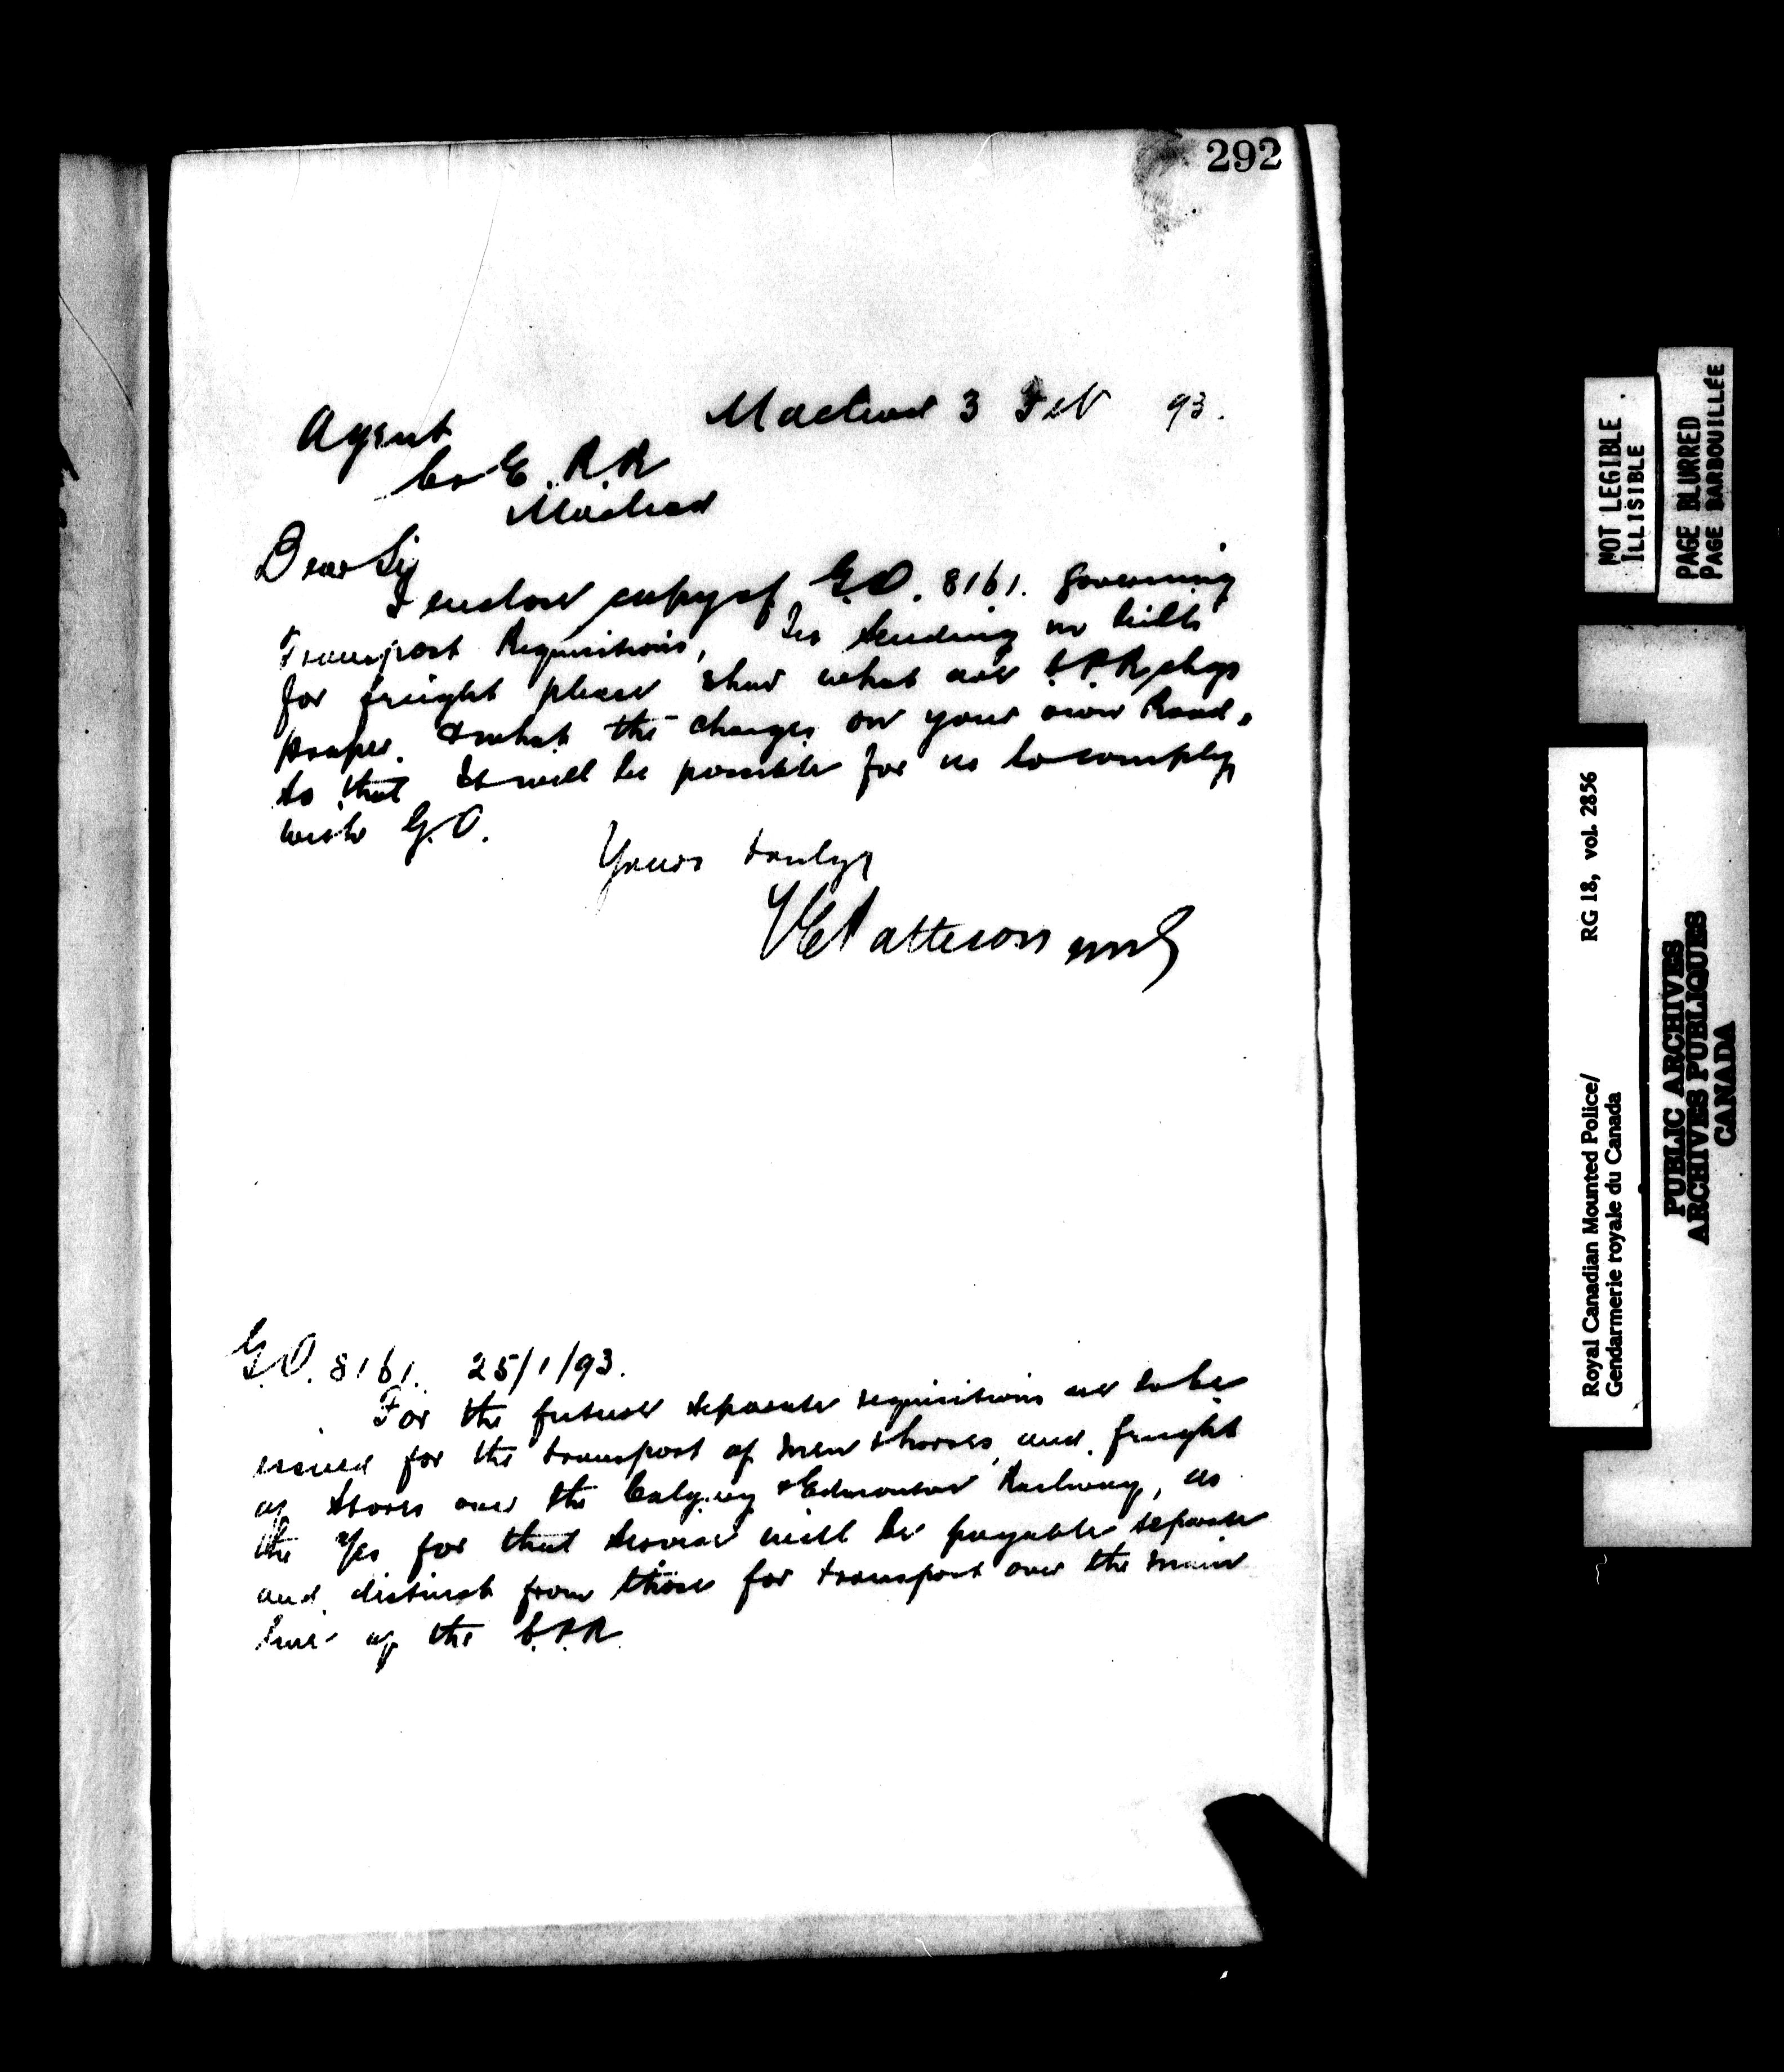 292
Macleod 3 Feb 93.
Agent
C & E. R.R
Macleod
Dear Sir
I enclose copy of G.O. 8161. governing
Transport Requisitions, In sending in bills
for freight please show what are C.P.R. chgs
proper. & what the charges on your own Road.
so that it will be possible for us to comply
with G.O.
Yours truly
Patterson
G.O. 8161. 25/1/93.
For the future separate requisitions are to be
issued for the transport of men & horses, and freight
of stores over the Calgary & Edmonton Railway, as
the for that service will be payable separate
and distinct from those for transport over the main
line of the C.P.R.
NOT LEGIBLE
ILLISIBLE
PAGE BLURRED
PAGE BARBOUILLÉE
RG 18, vol. 2856
Royal Canadian Mounted Police/
Gendarmerie royale du Canada
PUBLIC ARCHIVES
ARCHIVES PUBLIQUES
CANADA